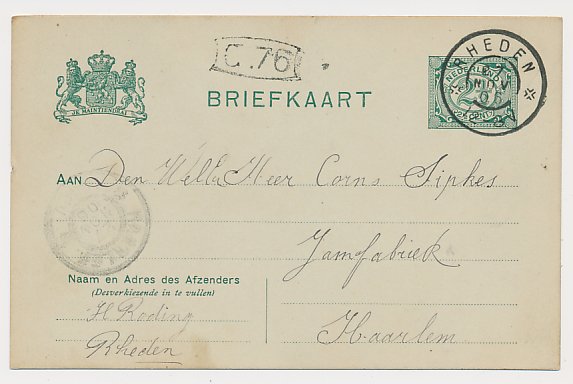 C.76
RHEDEN
NEDERLAND
JE MAINTIENDRAI
BRIEFKAART
AAN Den WelEd Heer Corns Sipkes
Jamfabriek
Haarlem
Naam en Adres des Afzenders
(Desverkiezende in te vullen)
H Roding
Rheden